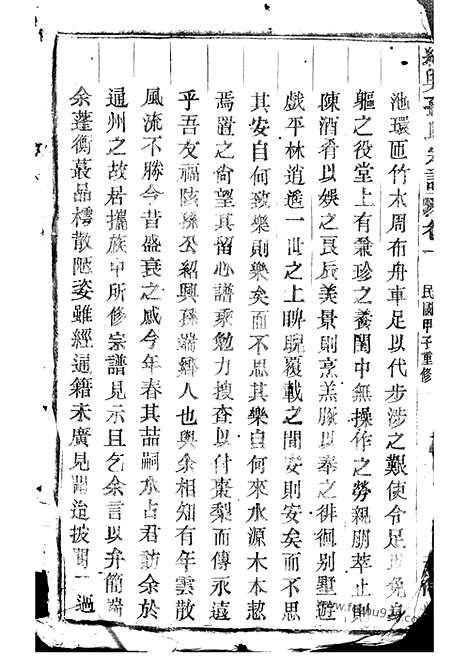 紹興孫氏宗譜 卷一 民國甲子重修
池環匝竹木周布舟車足以代步涉之艱使令足以免身
軀之役堂上有兼珍之養閨中無操作之勞親朋萃止則
陳酒肴以娛之良辰美景則烹羔豚以奉之徘徊別墅遊
戲平林逍遙一世之上睥睨覆載之間安則安矣而不思
其安自何致樂則樂矣而不思其樂自何來水源木本恝
焉置之尚望其留心譜乘勉力搜查以付棗梨而傳永遠
乎吾友福陔孫公紹興孫端鄉人也與余相知有年雲散
風流不勝今昔盛衰之感今年春其喆嗣水占君訪余於
通州之故居攜族中所修宗譜見示且乞余言以弁簡端
余蓬衡蕞品樗散陋姿雖經通籍未廣見聞迨披閱一過